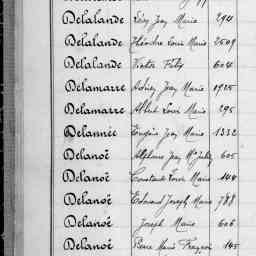 Delalande Loïsy Jean Marie 294
Delalande Théodore Louis Marie 2509
Delalande Victor Félix 604
Delamarre Adrien Jean Marie 1925
Delamarre Albert Louis Marie 295
Delannée Eugène Jean Marie 1332
Delanoë Alphonse Jean 605
Delanoë Constant Louis Marie 144
Delanoë Edouard Joseph Marie 788
Delanoë Joseph Marie 606
Delanoë Pierre Marie François 145